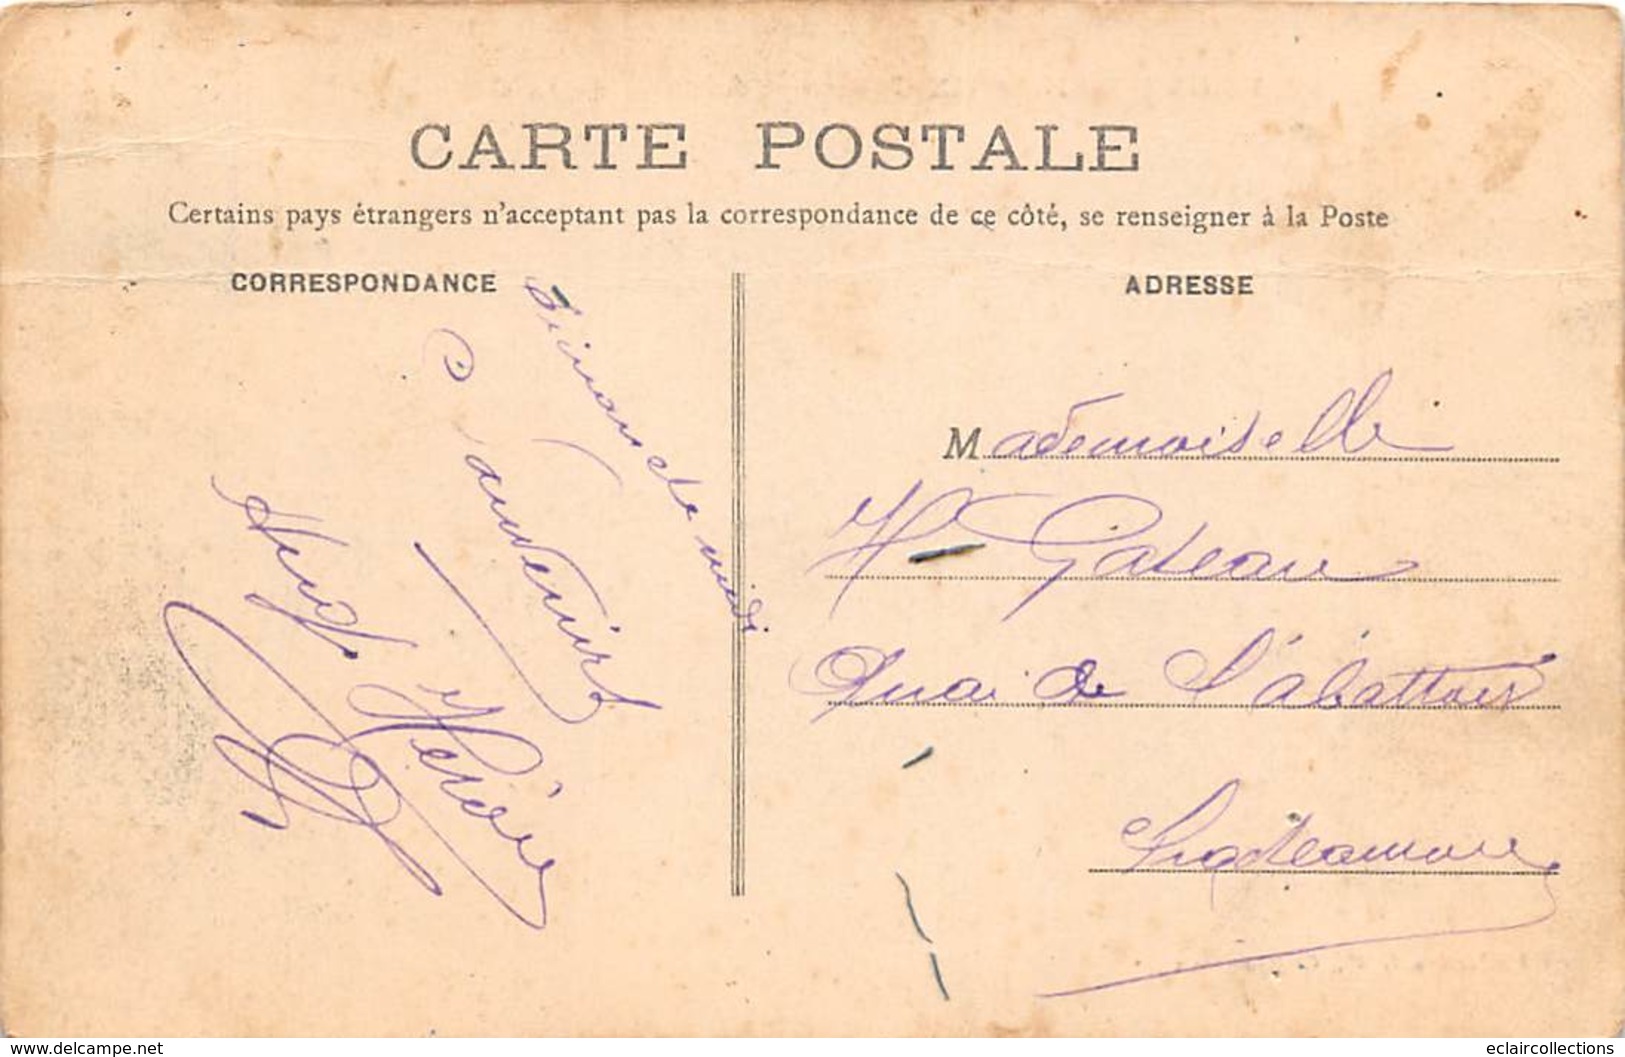 CARTE POSTALE
Certains pays étrangers n'acceptant pas la correspondance de ce côté, se renseigner à la Poste
CORRESPONDANCE
Dimanche midi
Souvenirs
ADRESSE
Mademoiselle
H Gateau
Quai de l'abattoir
www.delcampe.net
eclaircollections